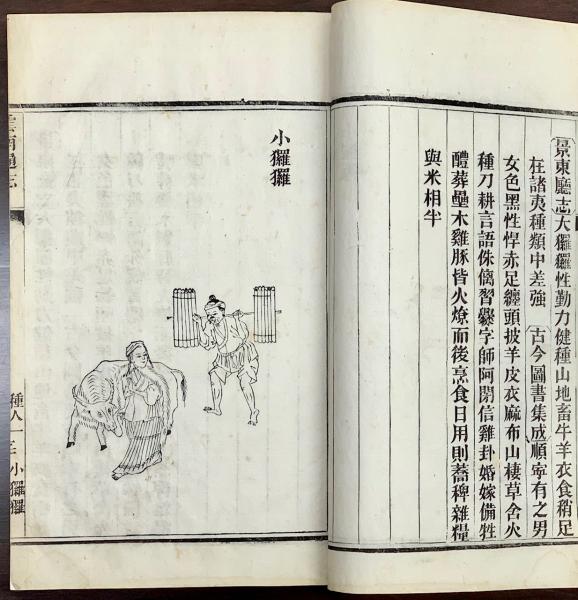 景東廳志大玀玀性勤力健種山地畜牛羊衣食稍足
在諸夷種類中差強　古今圖書集成順寧有之男
女色黑性悍赤足纏頭披羊皮衣麻布山棲草舍火
種刀耕言語侏𠌯習爨字師阿閉信雞卦婚嫁備牲
醴葬壘木雞豚皆火燎而後烹食日用則蕎稗雜糧
與米相半
小玀玀
雲南通志
種人一
三
小玀玀